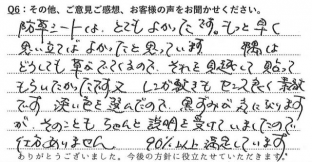 Q6：その他、ご意見ご感想、お客様の声をお聞かせください。
防草シートは、とてもよかったです。もっと早く
思い立てば よかったと思っています
どうしても草なでてくるので、それを見越して貼って
もらいたかったです又 レンガ敷きも センス良く 素敵
です 淡い色を選んだので、黒ずみが気になります
が そのことも ちゃんと説明を受けていましたので
仕方ありません。 90%以上満足しています
ありがとうございました。今後の方針に役立たせていただきます